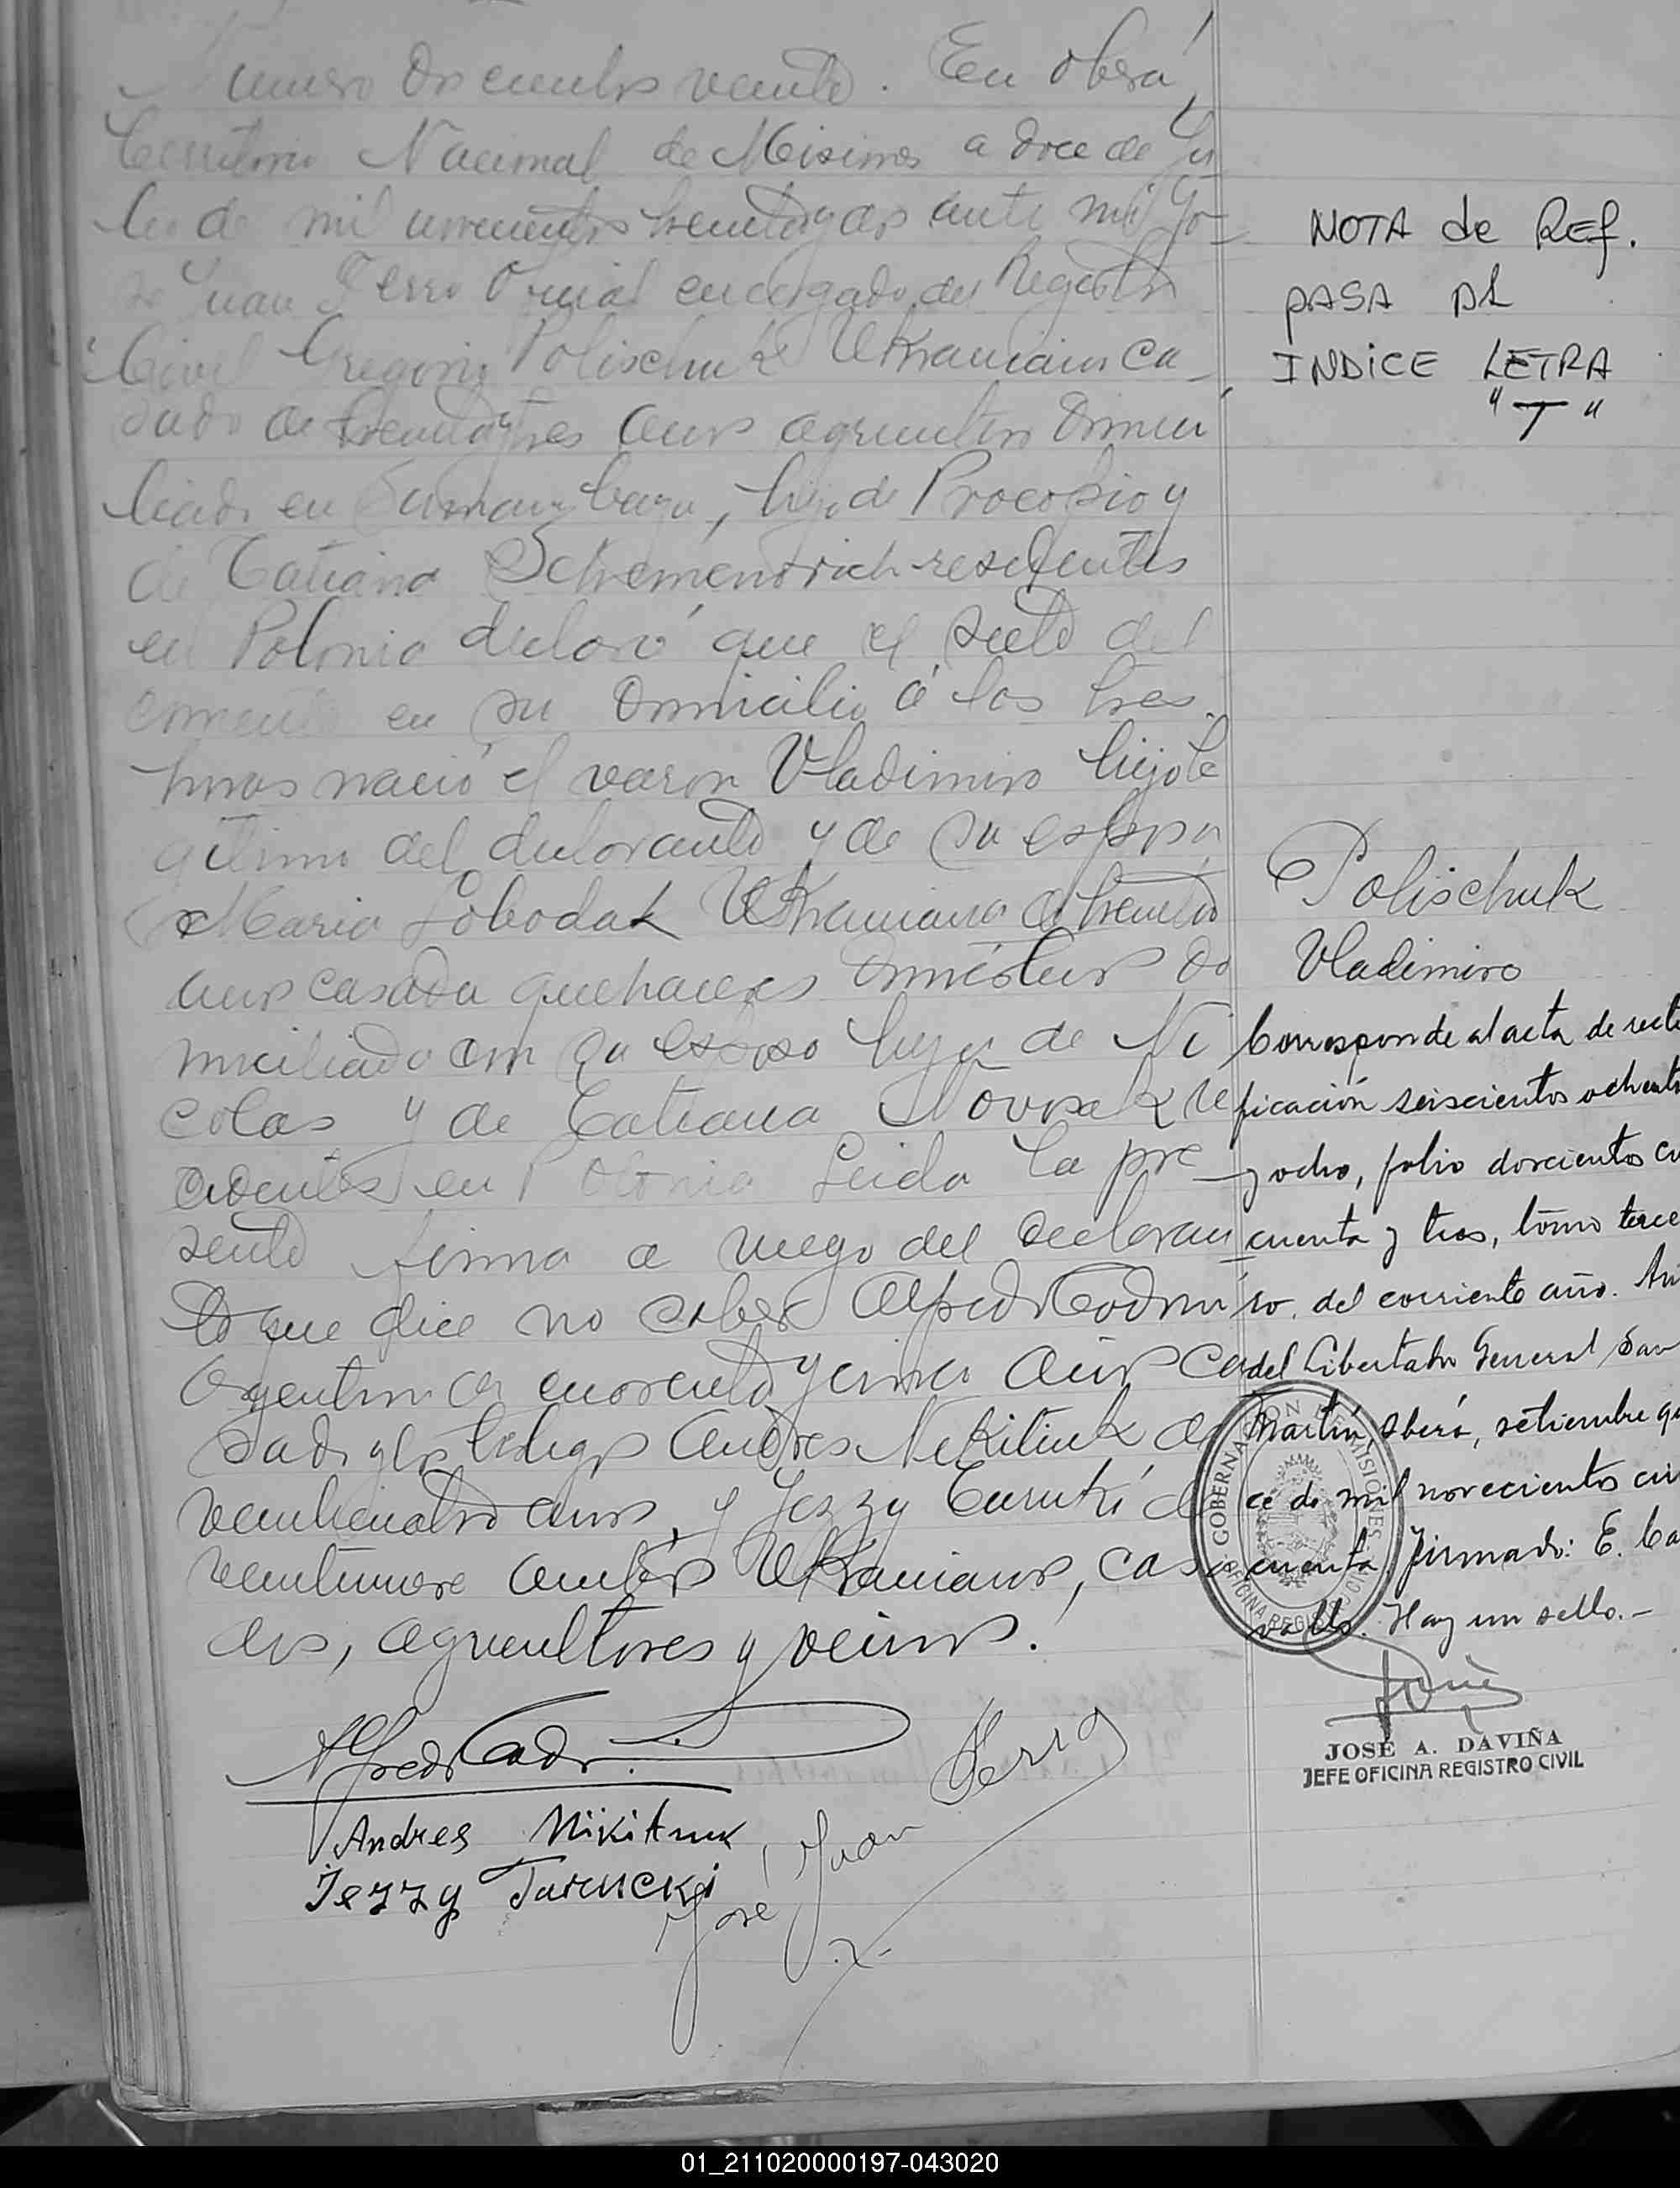 Numero doscientos veinte. En Oberá,
Territorio Nacional de Misiones a doce de Ju
lio de mil novecientos treintaydos ante mi Jo-
sé Juan Ferro Oficial encargado del Registro
Civil Gregorio Polischuk Ukraniano ca-
sado de treintaytres años agricultor domici
liado en , hijo de Procopio y
de Tatiana residentes
en Polonia declaró que el siete del
corriente en su domicilio á las tres
horas nació el varon Vladimiro hijo le
gitimo del declarante y de su esposa
Maria Lobodak Ukraniana de treinta
años casada quehaceres domésticos do
miciliada con su esposo hija de Ni
colas y de Tatiana re
cidentes en Polonia Leida la pre
sente firma a ruego del declaran
te que dice no saber Alfredo
Argentino de cuarenta y cinco años ca
sado y los testigos Andres Nikitiuk de
veinticuatro años y Jezzy de
veintinueve ambos Ukranianos, casa
dos, agricultores y vecinos.
Alfredo
Andres Nikitiuk
Jezzy Tarucki
José Juan
NOTA de REf.
PASA AL
INDICE LETRA
"T"
Polischuk
Vladimiro
Corresponde al acta de recti
ficación seiscientos ochenta
y ocho, folio doscientos cin
cuenta y tres, tomo terce
ro, del corriente año. Año
del Libertador General San
Martín, Oberá, setiembre qu
ce de mil novecientos cin
cuenta. Firmado: E. Ca
vallo. Hay un sello.-
GOBERNACION DE MISIONES
JOSÉ A. DAVIÑA
JEFE OFICINA REGISTRO CIVIL
01_211020000197-043020